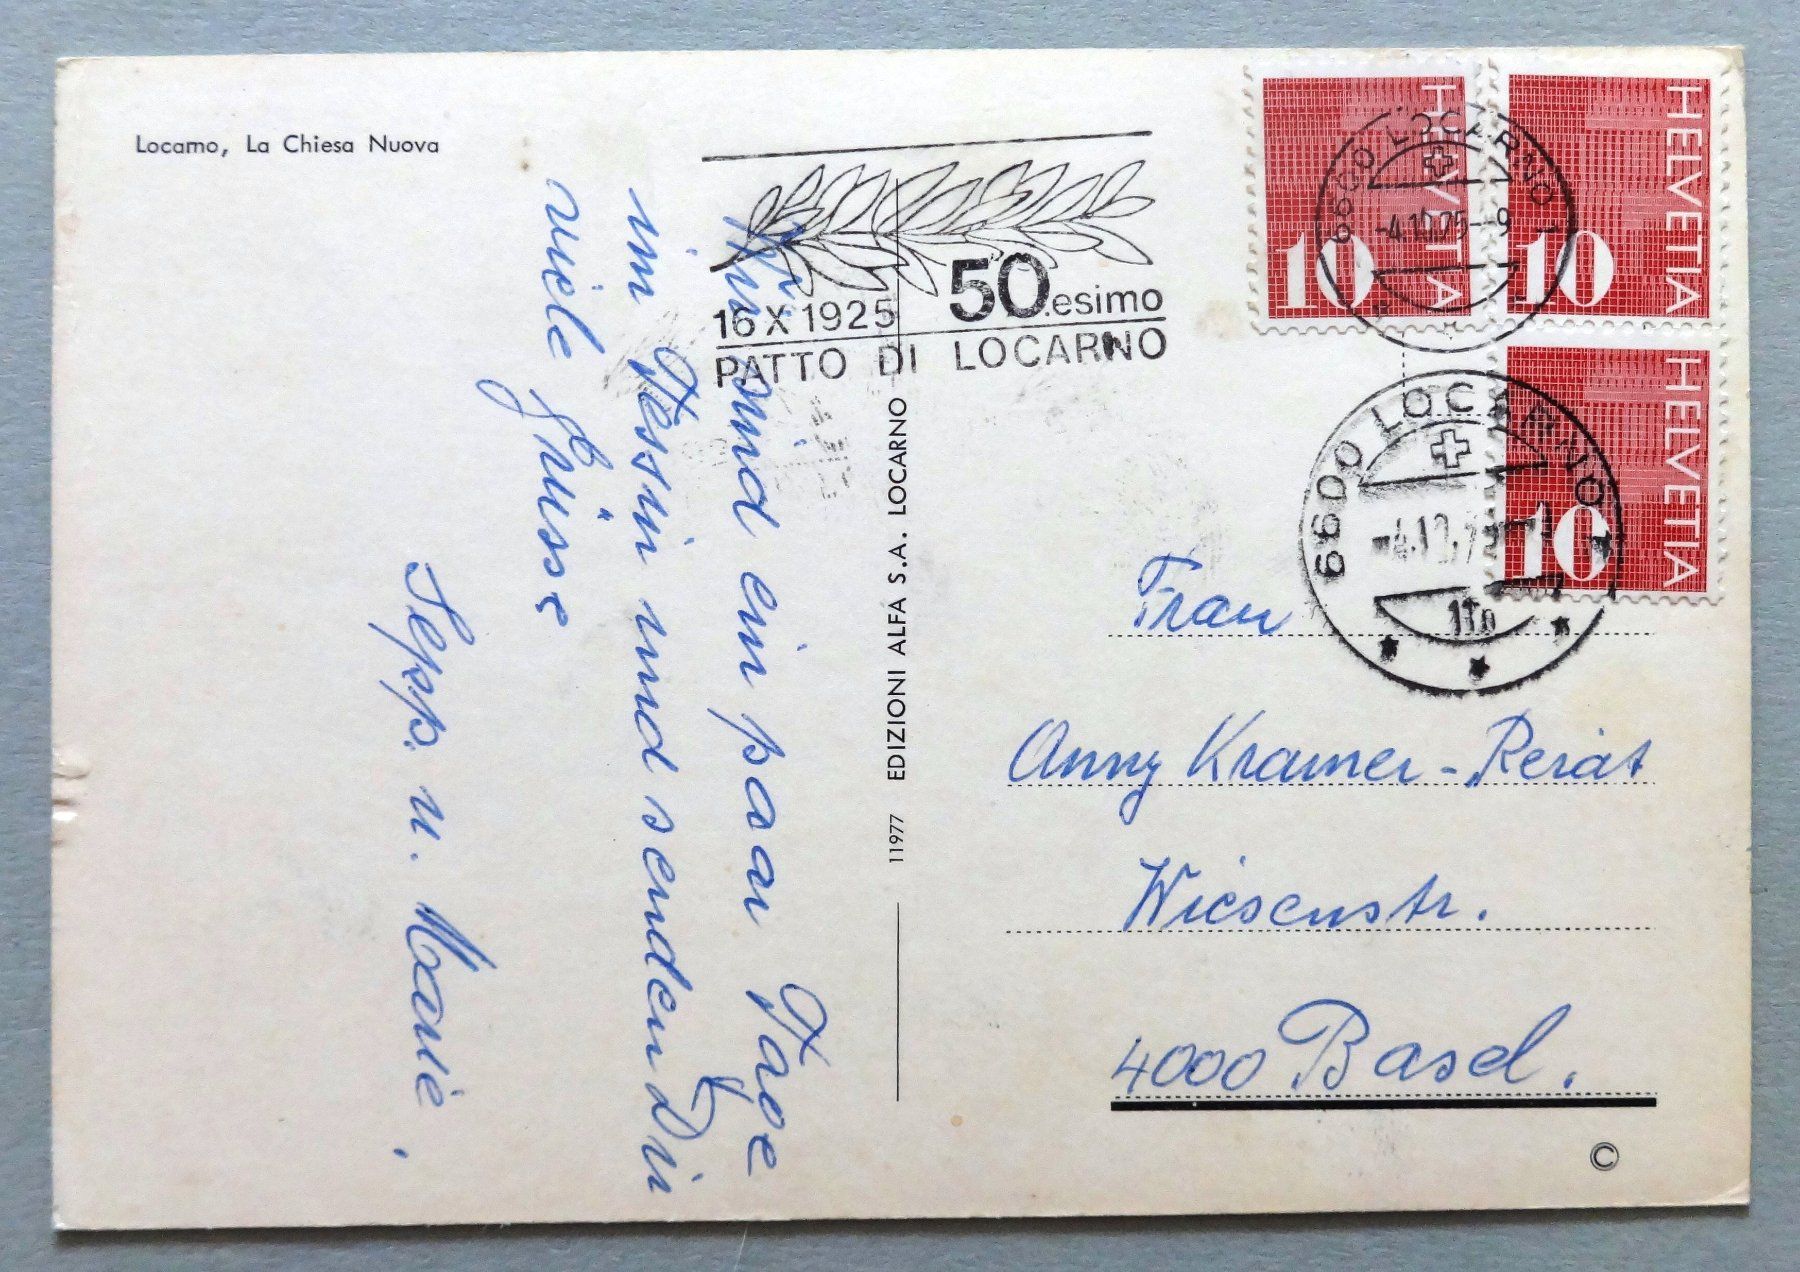 Locarno, La Chiesa Nuova
Wir sind ein paar Tage
im Tessin und senden Dir
viele Grüsse
Sepp. u. Marie.
16 X 1925 50.esimo
PATTO DI LOCARNO
11977 EDIZIONI ALFA S.A. LOCARNO
HELVETIA
10
HELVETIA
10
HELVETIA
10
6600 LOCARNO 1
-4.10.75-9
6600 LOCARNO 1
-4.10.75
Frau
Anny Kramer-Reiat
Wiesenstr.
4000 Basel.
©